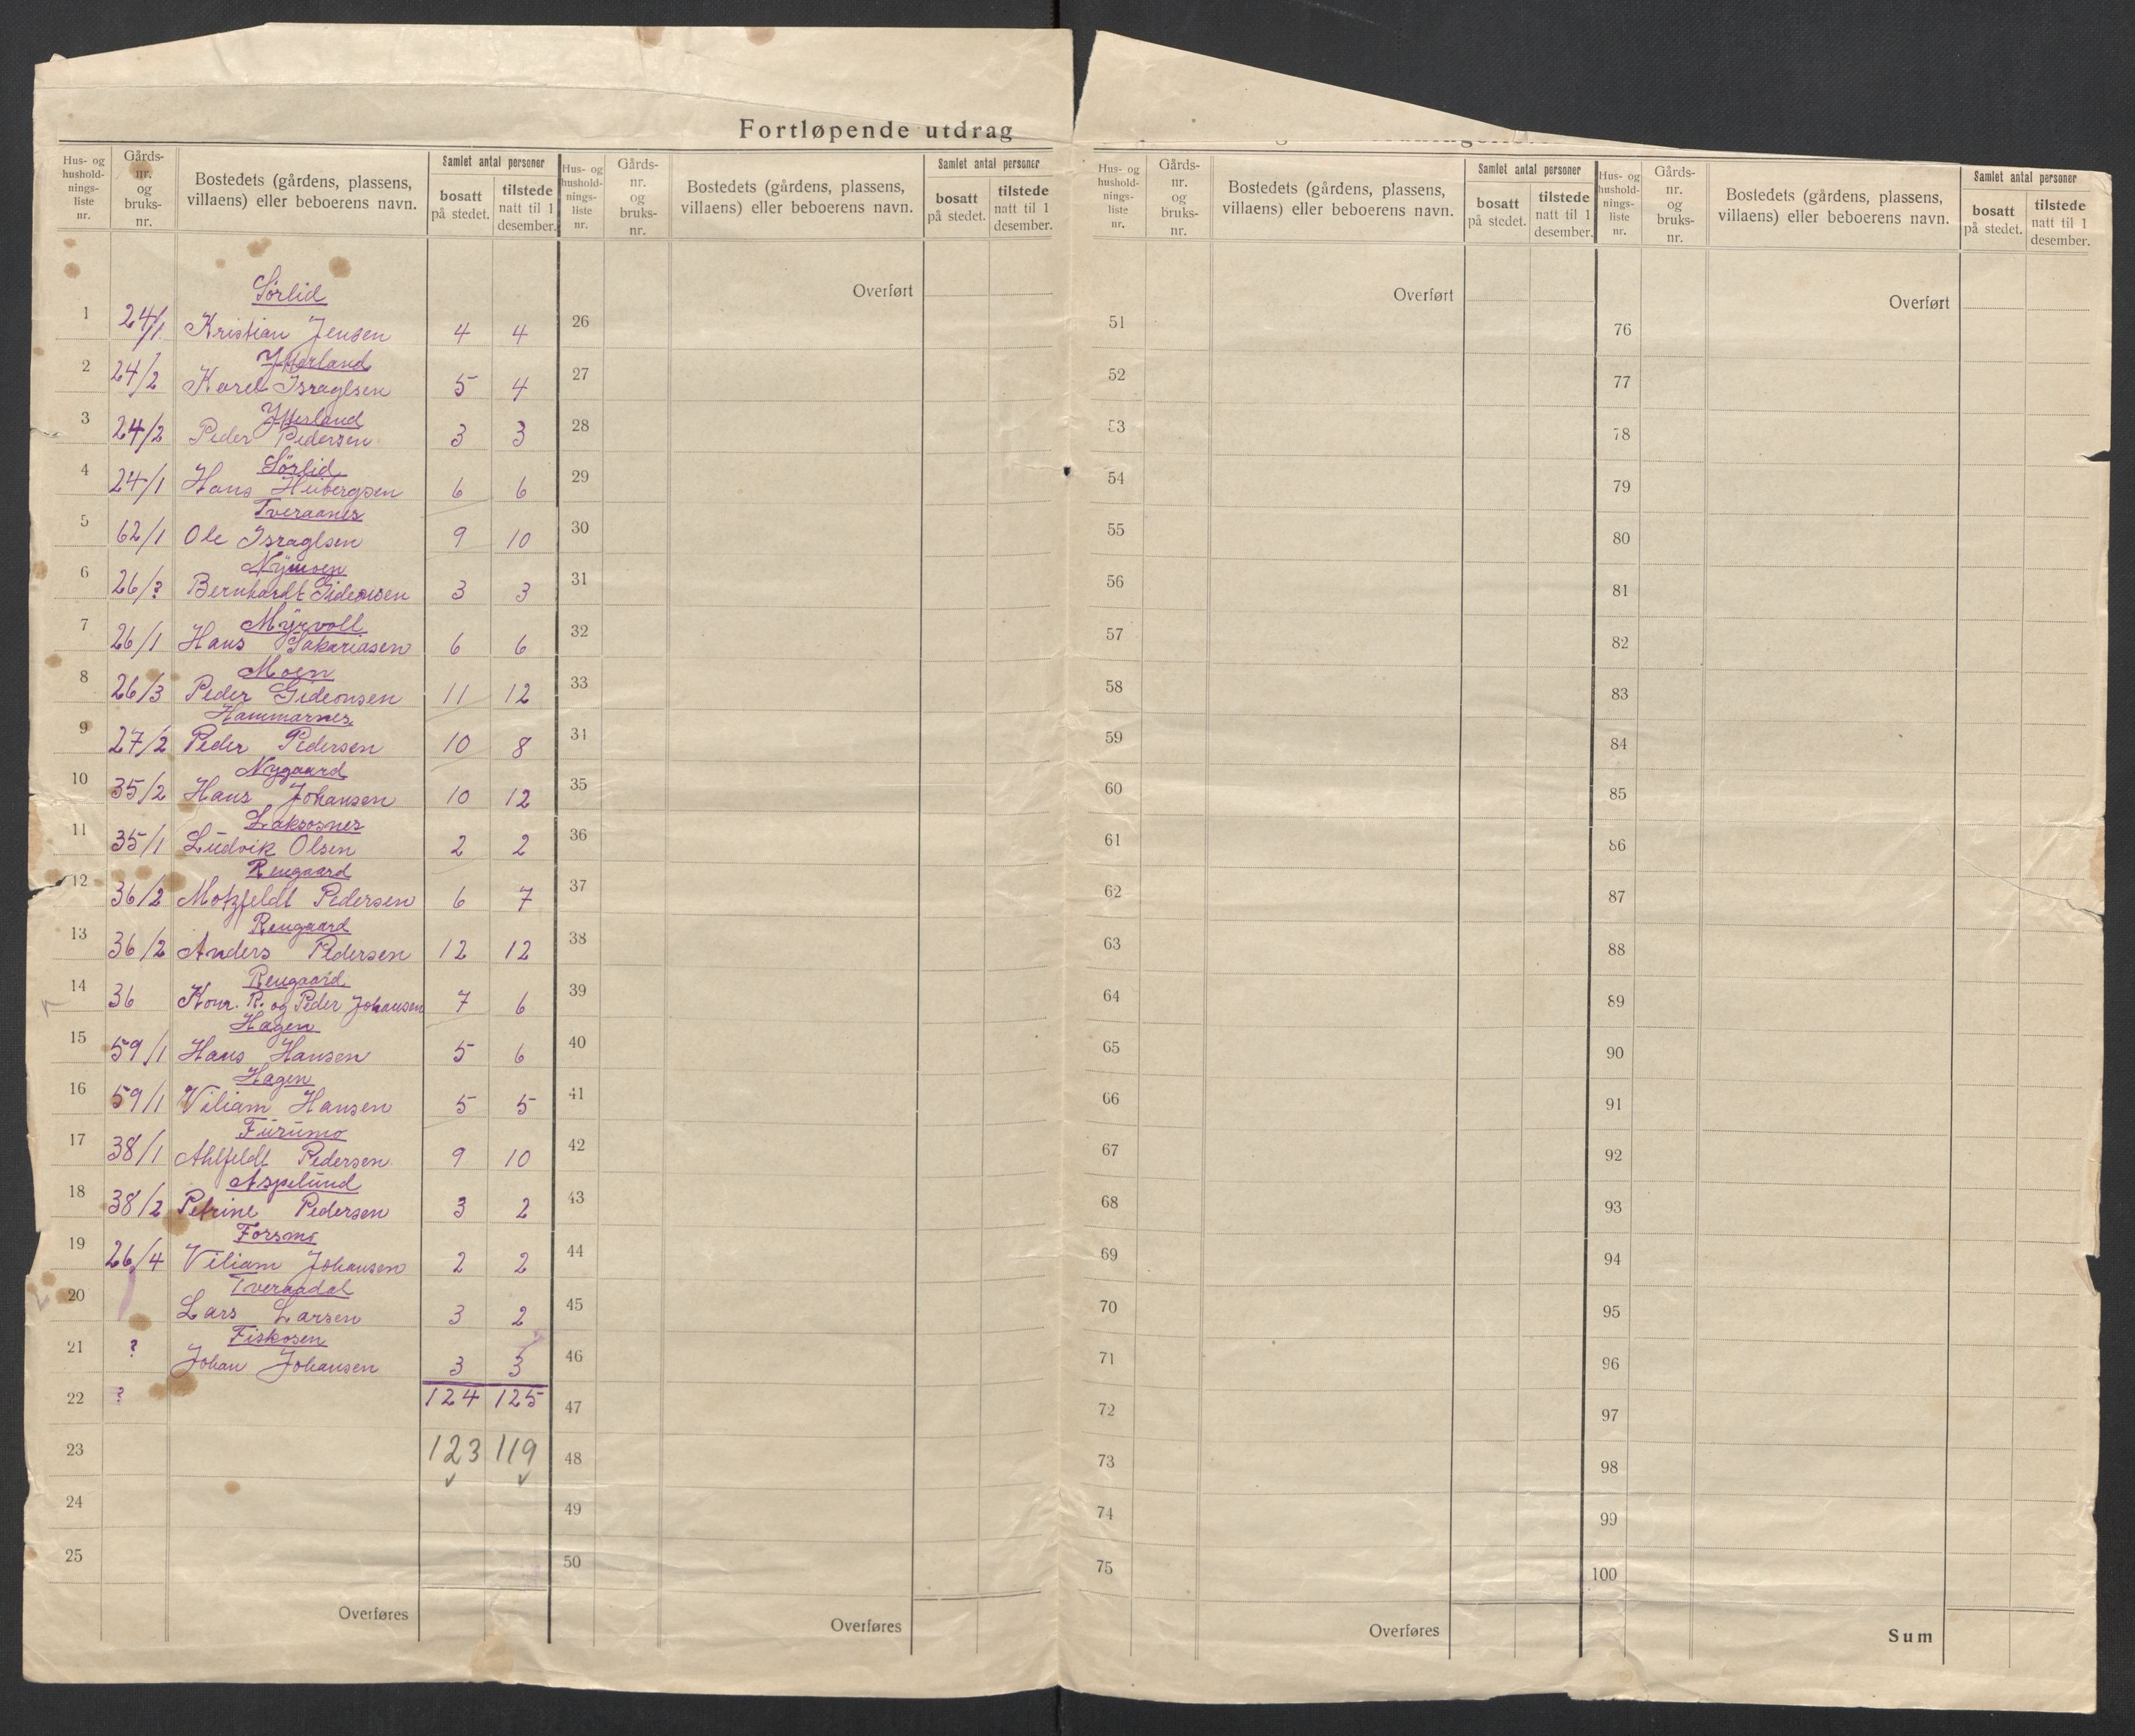 Fortløpende utdrag
Hus- og husholdnings-liste nr. | Gårds-nr. og bruks-nr. | Bostedets (gårdens, plassens, villaens) eller beboerens navn. | Samlet antal personer | bosatt på stedet. | tilstede natt til 1 desember.
Sørlid
1 24/1 Kristian Jensen 4 4
Ytterland
2 24/2 Karel Israelsen 5 4
3 24/2 Peder Pedersen 3 3
Sørlid
4 24/1 Hans Heibergsen 6 6
Tveraanes
5 62/1 Ole Israelsen 9 10
Nymoen
6 26/? Bernhardt Gideonsen 3 3
Myrvoll
7 26/1 Hans Sakariasen 6 6
Moen
8 26/3 Peder Gideonsen 11 12
Hammarnes
9 27/2 Peder Pedersen 10 8
Nygaard
10 35/2 Hans Johansen 10 12
Laksosnes
11 35/1 Ludvik Olsen 2 2
Rengaard
12 36/2 Motzfeldt Pedersen 6 7
Rengaard
13 36/2 Anders Pedersen 12 12
Rengaard
14 36 Konr. R. og Peder Johansen 7 6
Hagen
15 59/1 Hans Hansen 5 6
Hagen
16 59/1 Viliam Hansen 5 5
Furumo
17 38/1 Ahlfeldt Pedersen 9 10
Aspelund
18 38/2 Petrine Pedersen 3 2
Forsmo
19 26/4 Viliam Johansen 2 2
Tveraadal
20 Lars Larsen 3 2
Fiskosen
21 ? Johan Johansen 3 3
22 ? 124 125
23 123 119
24
25
Overføres
Hus- og husholdnings-liste nr. | Gårds-nr. og bruks-nr. | Bostedets (gårdens, plassens, villaens) eller beboerens navn. | Samlet antal personer | bosatt på stedet. | tilstede natt til 1 desember.
Overført
26
27
28
29
30
31
32
33
34
35
36
37
38
39
40
41
42
43
44
45
46
47
48
49
50
Overføres
Hus- og husholdnings-liste nr. | Gårds-nr. og bruks-nr. | Bostedets (gårdens, plassens, villaens) eller beboerens navn. | Samlet antal personer | bosatt på stedet. | tilstede natt til 1 desember.
Overført
51
52
53
54
55
56
57
58
59
60
61
62
63
64
65
66
67
68
69
70
71
72
73
74
75
Overføres
Hus- og husholdnings-liste nr. | Gårds-nr. og bruks-nr. | Bostedets (gårdens, plassens, villaens) eller beboerens navn. | Samlet antal personer | bosatt på stedet. | tilstede natt til 1 desember.
Overført
76
77
78
79
80
81
82
83
84
85
86
87
88
89
90
91
92
93
94
95
96
97
98
99
100
Sum